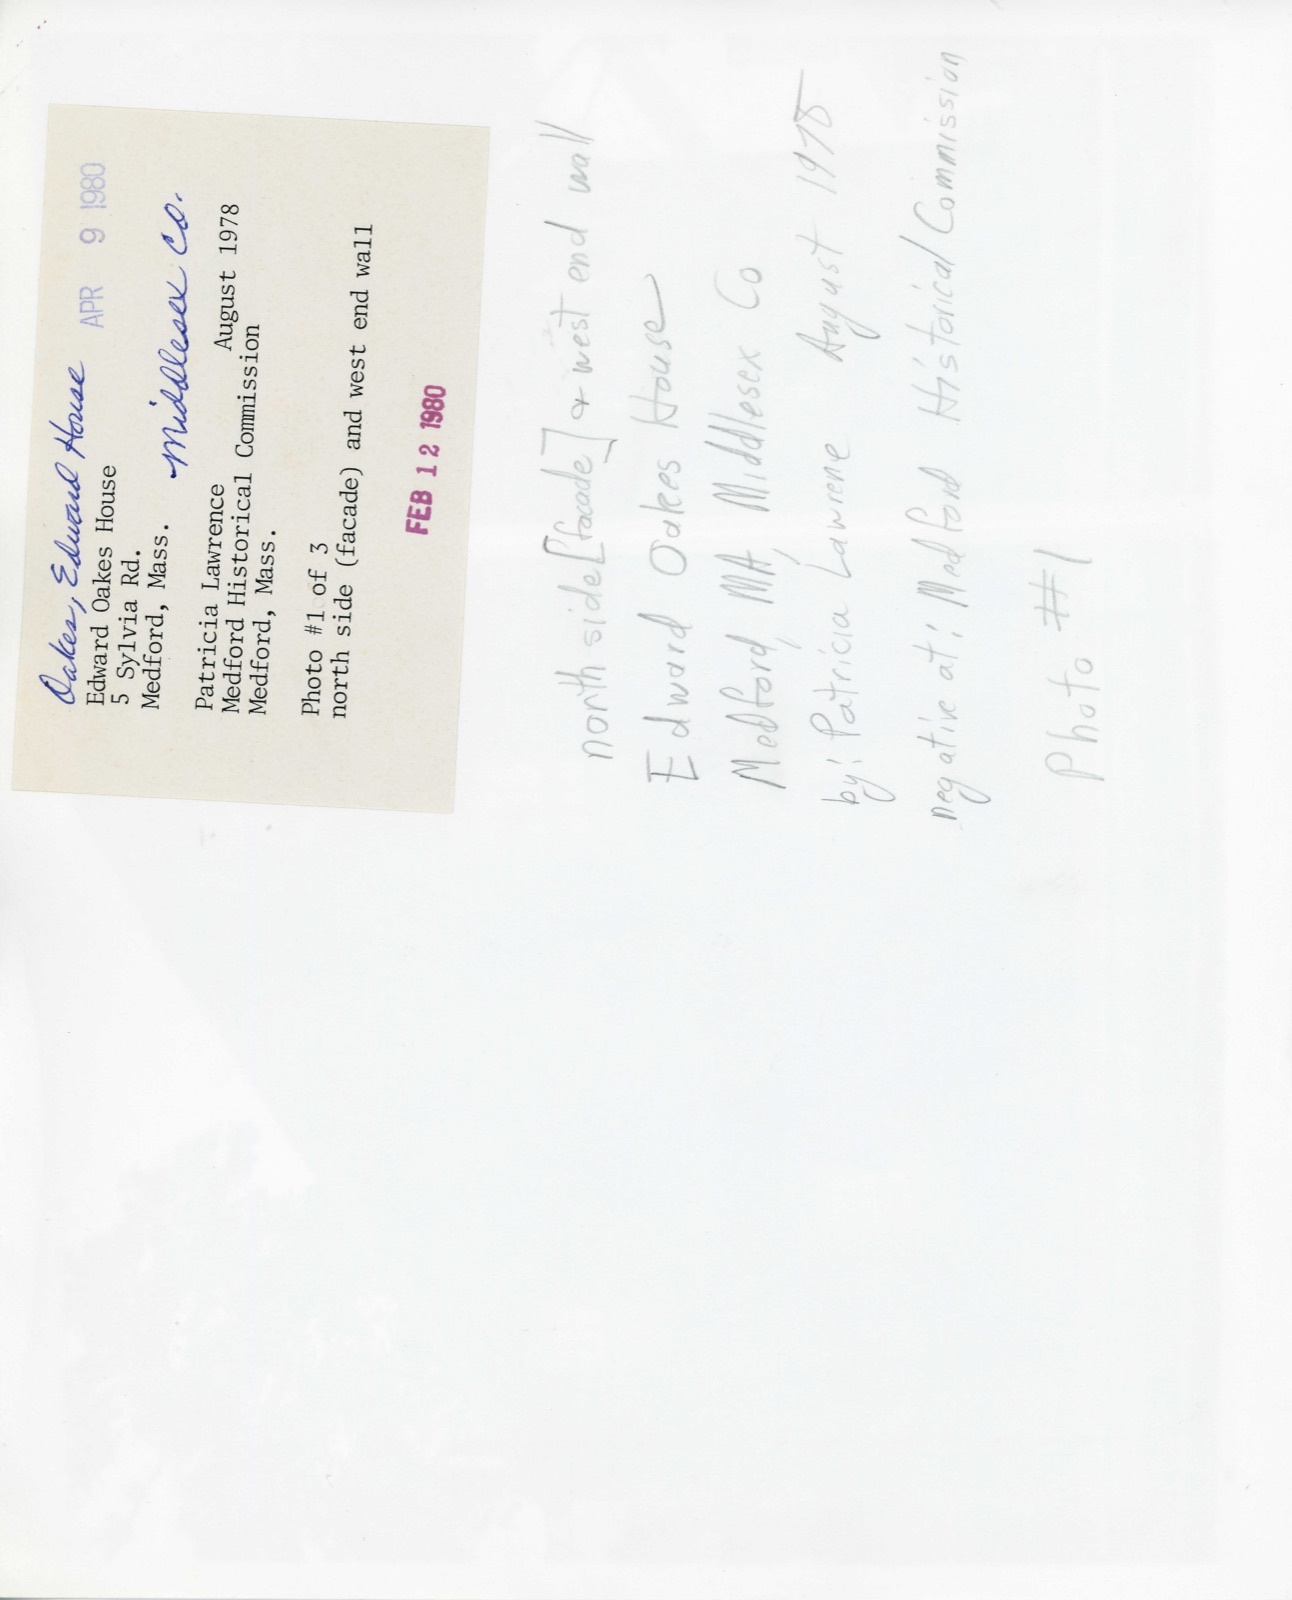 Oakes, Edward House
Edward Oakes House APR 9 1980
5 Sylvia Rd.
Medford, Mass. Middlesex Co.
Patricia Lawrence August 1978
Medford Historical Commission
Medford, Mass.
Photo #1 of 3
north side (facade) and west end wall
FEB 12 1980
north side [facade] & west end wall
Edward Oakes House
Medford, MA, Middlesex Co
by: Patricia Lawrene August 1978
negative at: Medford Historical Commission
Photo #1